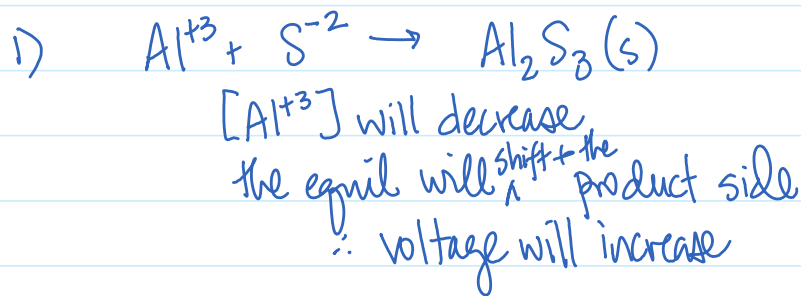 1) Al⁺³ + S⁻² → Al₂S₃(s)
[Al⁺³] will decrease
the equil will shift t the product side
∴ voltage will increase